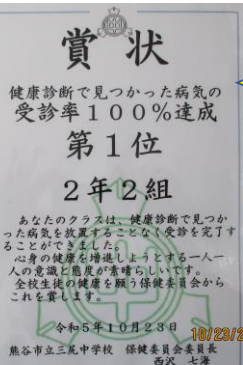 賞状
健康診断で見つかった病気の
受診率100%達成
第1位
2年2組
あなたのクラスは、健康診断で見つか
った病気を放置することなく受診を完了す
ることができました。
心身の健康を増進しようとする一人一
人の意識と態度が素晴らしいです。
全校生徒の健康を願う保健委員会から
これを賞します。
令和5年10月23日
10/23/2
熊谷市立三尻中学校 保健委員会委員長
西沢 七海